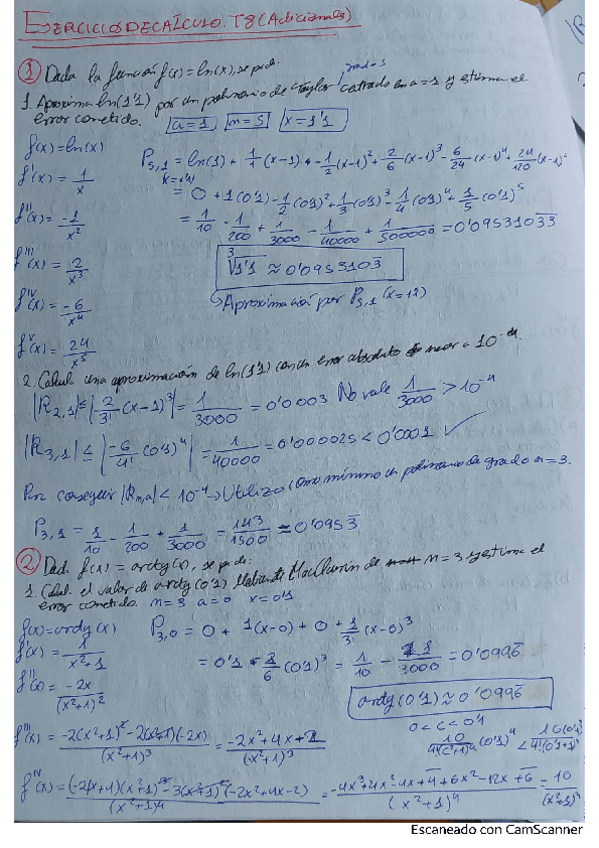 EJERCICIOS DE CÁLCULO. T8 (Adicionales)
① Dada la función f(x) = ln(x), se pide:
grado 5
1. Aproxima ln(1'1) por un polinomio de Taylor centrado en a = 1 y estima el
error cometido. a = 1 n = 5 x = 1'1
f(x) = ln(x)
P5,1 = ln(1) + 1/1 (x-1) + -1/2 (x-1)² + 2/6 (x-1)³ - 6/24 (x-1)⁴ + 24/120 (x-1)⁵
f'(x) = 1/x
= 0 + 1(0'1) - 1/2 (0'1)² + 1/3 (0'1)³ - 1/4 (0'1)⁴ + 1/5 (0'1)⁵
f''(x) = -1/x²
= 1/10 - 1/200 + 1/3000 - 1/40000 + 1/500000 = 0'0953103̅3̅
f'''(x) = 2/x³
∛1'1 ≈ 0'0955103̅
f^IV(x) = -6/x⁴
↳ Aproximación por P5,1 (x = 12)
f^V(x) = 24/x⁵
2. Calcula una aproximación de ln(1'1) con un error absoluto menor a 10⁻⁴.
|R2,1| ≤ |2/3! (x-1)³| = 1/3000 = 0'0003 No vale 1/3000 > 10⁻⁴
|R3,1| ≤ |-6/4! (0'1)⁴| = 1/40000 = 0'000025 < 0'0001 ✓
Para conseguir |Rn,a| < 10⁻⁴ → Utilizo como mínimo un polinomio de grado n = 3.
P3,1 = 1/10 - 1/200 + 1/3000 = 143/1500 = 0'0953̅
② Dada f(x) = arctg(x), se pide:
1. Calcula el valor de arctg(0'1) MacLaurin de n = 3 y estima el
error cometido. n = 3 a = 0 x = 0'1
f(x) = arctg(x)
P3,0 = 0 + 1(x-0) + 0 + 2/3! (x-0)³
f'(x) = 1/x²+1
= 0'1 - 2/6 (0'1)³ = 1/10 - 1/3000 = 0'0996̅
f''(x) = -2x/(x²+1)²
arctg(0'1) ≈ 0'0996̅
0 < c < 0'1
f'''(x) = -2(x²+1)² - 2(x²+1)(-2x)/(x²+1)³ = -2x²+4x-2/(x²+1)³
10/4!(c²+1)⁴ (0'1)⁴ <
f^IV(x) = (-2x+4)(x²+1)³ - 3(x²+1)²(-2x²+4x-2)/(x²+1)⁴ = -4x³+4x²-4x+4+6x²-12x+6/(x²+1)⁴ = 10/(x²+1)³
Escaneado con CamScanner